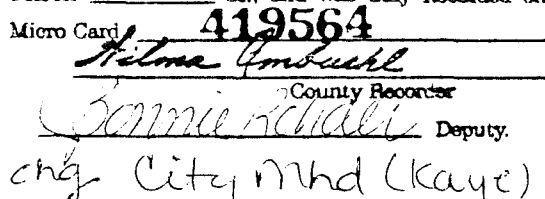 Micro Card 419564
Wilma Ambuehl
County Recorder
Bonnie Deputy.
chg City Mhd (Kaye)